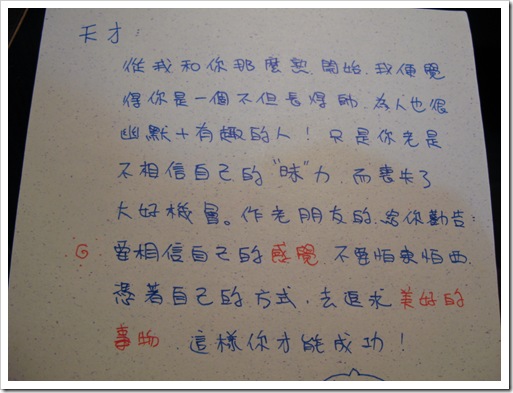 天才：
從我和你那麼熟開始，我便覺
得你是一個不但長得帥，為人也很
幽默+有趣的人！只是你老是
不相信自己的“昧”力，而喪失了
大好機會。作老朋友的，給你勸告：
要相信自己的感覺，不要怕東怕西，
憑著自己的方式，去追求美好的
事物，這樣你才能成功！